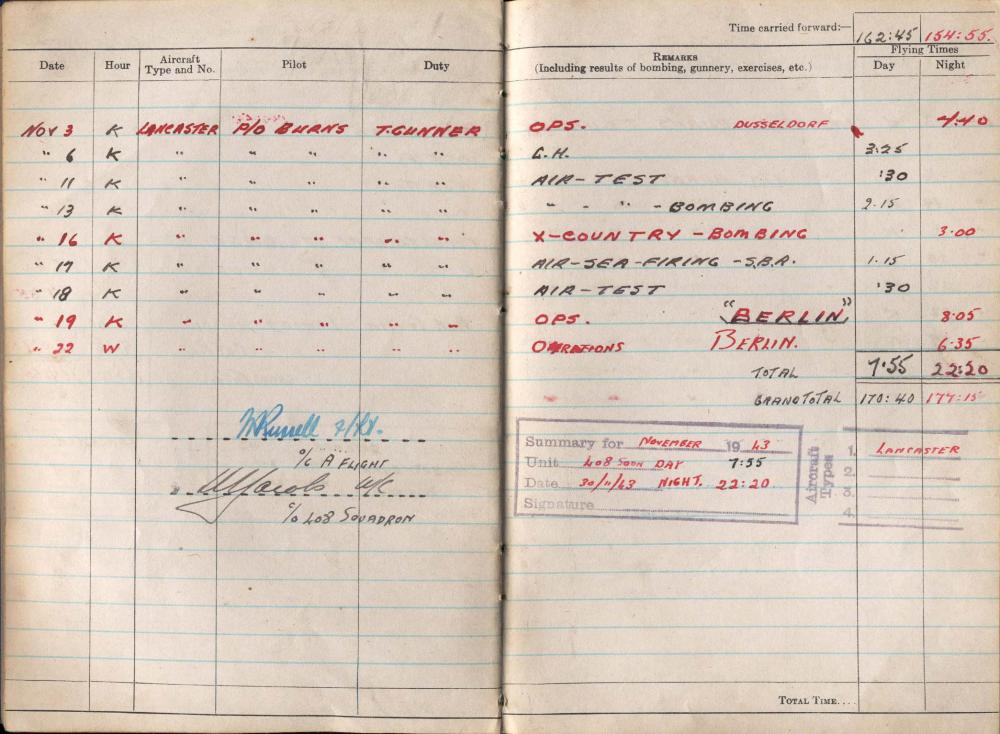 Time carried forward:— 162:45 154:55.
Date Hour Aircraft Type and No. Pilot Duty REMARKS (Including results of bombing, gunnery, exercises, etc.) Flying Times Day Night
NOV 3 K LANCASTER P/O BURNS T.GUNNER OPS. DUSSELDORF 4.40
" 6 K " " " " " G.H. 3:25
" 11 K " " " " " AIR-TEST :30
" 13 K " " " " " " - " - BOMBING 2.15
" 16 K " " " " " X-COUNTRY - BOMBING 3.00
" 17 K " " " " " AIR-SEA-FIRING - S.B.A. 1.15
" 18 K " " " " " AIR-TEST :30
" 19 K " " " " " OPS. "BERLIN" 8.05
" 22 W " " " " " OPERATIONS BERLIN. 6.35
TOTAL 7.55 22:20
GRAND TOTAL 170:40 177:15
Russell F/Lt.
O/C A FLIGHT
W/C
O/C 408 SQUADRON
Summary for NOVEMBER 1943
Unit 408 SQDN DAY 7:55
Date 30/11/43 NIGHT. 22:20
Signature
Aircraft Types
1. LANCASTER
2.
3.
4.
TOTAL TIME....